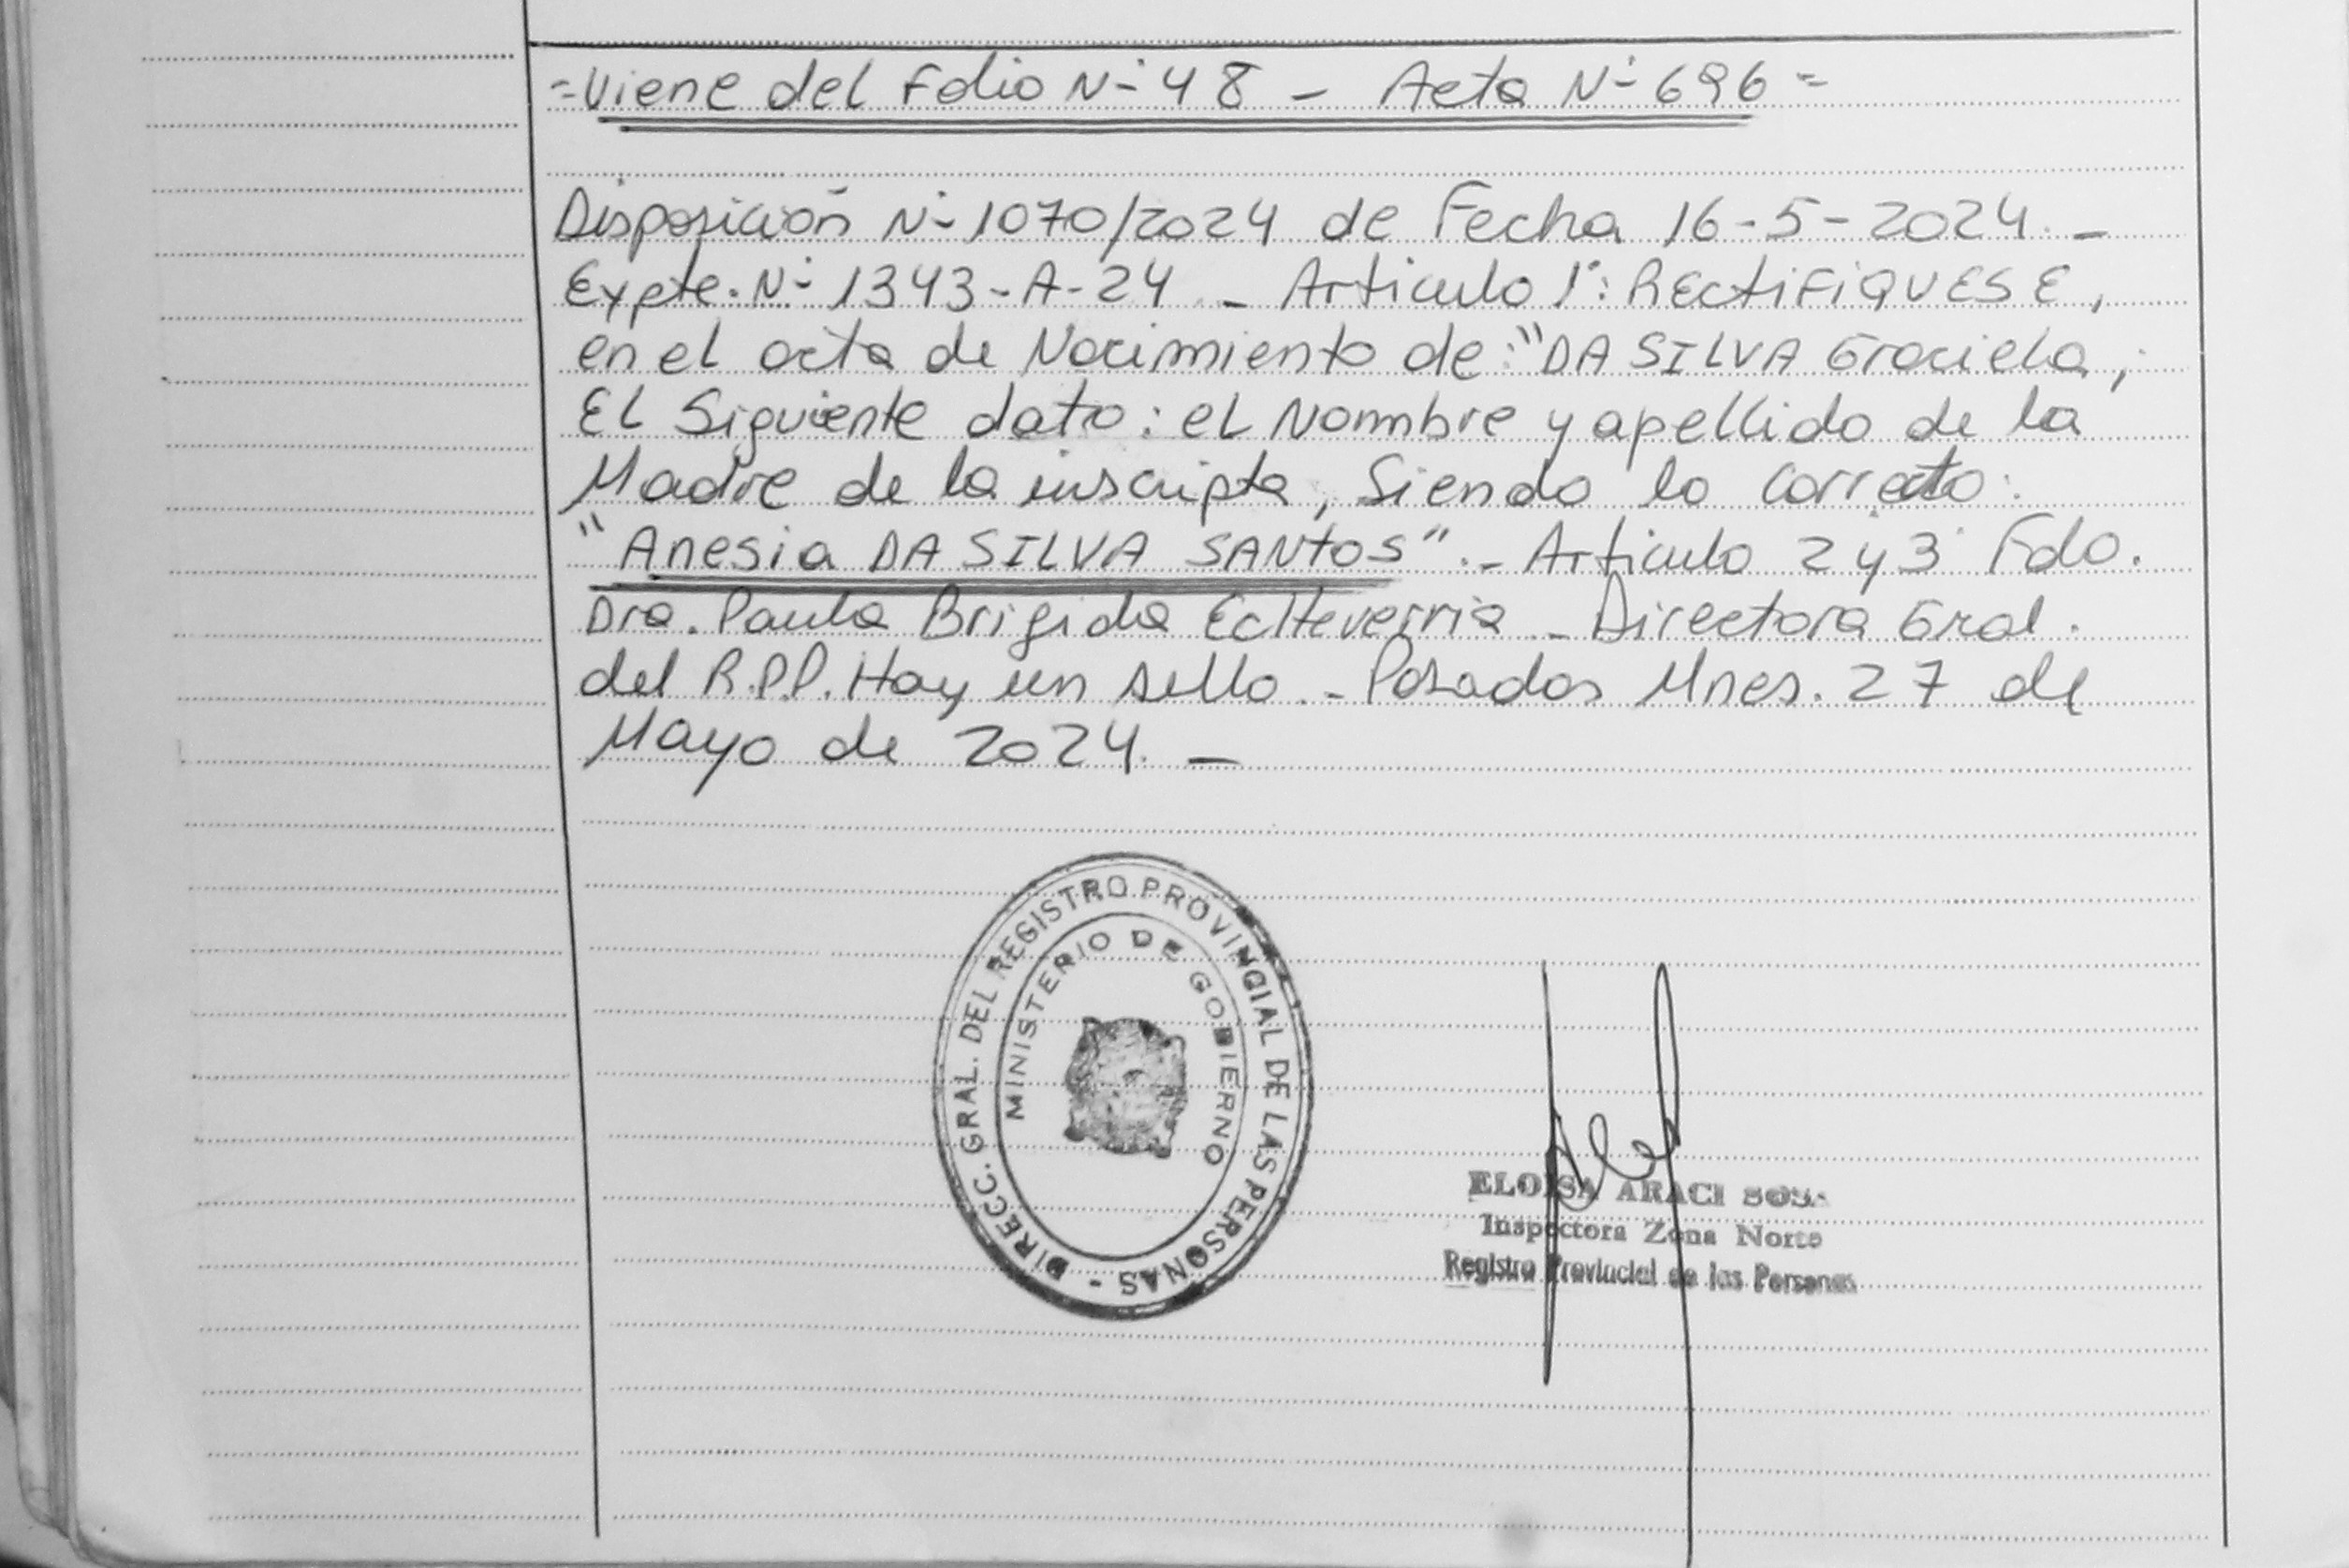 =Viene del Folio Nº 48 - Acta Nº 696=
Disposición Nº 1070/2024 de Fecha 16-5-2024.-
Expte. Nº 1343-A-24.- Articulo 1º: RECTIFIQUESE,
en el acta de Nacimiento de: "DA SILVA Graciela,
EL Siguiente dato: el Nombre y apellido de la
Madre de la inscripta, Siendo lo correcto:
"Anesia DA SILVA SANTOS".- Articulo 2 y 3 Fdo.
Dra. Paula Brigida Echeverria - Directora Gral.
del R.P.P. Hay un sello.- Posadas Mnes. 27 de
Mayo de 2024.-
DIRECC. GRAL. DEL REGISTRO PROVINCIAL DE LAS PERSONAS -
MINISTERIO DE GOBIERNO
ELOISA ARACI
Inspectora Zona Norte
Registro Provincial de las Personas